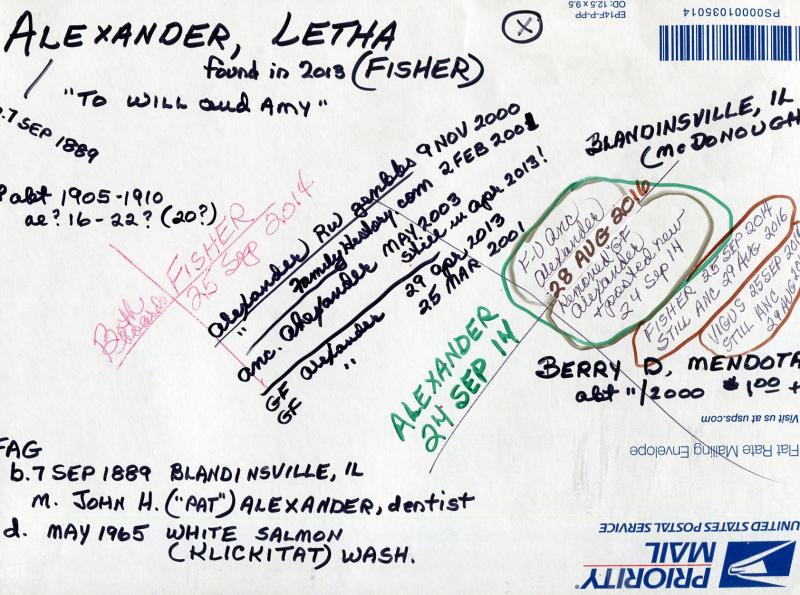 ALEXANDER, LETHA
found in 2013 (FISHER)
"TO WILL and AMY"
.7 SEP 1889
abt 1905-1910
ae? 16-22? (20?)
EP14F-P-PP
OD: 12.5 x 9.5
PS00001035014
BLANDINSVILLE, IL
(McDONOUGH
Both
FISHER
25 Sep 2014
Alexander RW genlobs 9 NOV 2000
" Family History.com 2 FEB 2001
anc. Alexander MAY 2003
still in apr 2013!
GF Alexander 29 apr 2013
GF " 25 MAR 2001
F-U Anc
Alexander
28 AUG 2016
Removed GF
Alexander
+ posted new
24 Sep 14
FISHER 25 SEP 2014
STILL ANC 29 AUG 2016
25 SEP 201
STILL ANC
29 AUG 201
ALEXANDER
24 SEP 14
BERRY D, MENDOTA
abt 11/2000 $1.00 +
Visit us at usps.com
Flat Rate Mailing Envelope
FAG
b. 7 SEP 1889 BLANDINSVILLE, IL
m. JOHN H. ("PAT") ALEXANDER, dentist
d. MAY 1965 WHITE SALMON
(KLICKITAT) WASH.
UNITED STATES POSTAL SERVICE
PRIORITY
MAIL